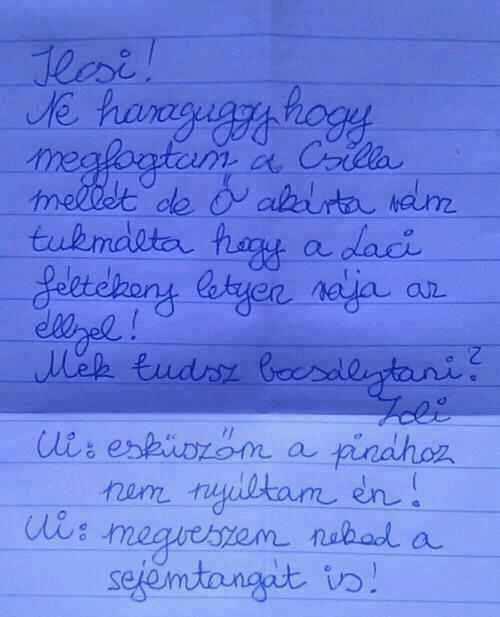 Ilcsi!
Ne haraguggy hogy
megfogtam a Csilla
mellét de Ő akárta rám
tukmálta hogy a Laci
féltékeny letyen rája az
éllyel!
Mek tudsz bocsálytani?
Zoli
Ui: esküszőm a pinához
nem nyúltam én!
Ui: megveszem neked a
sejemtangát is!